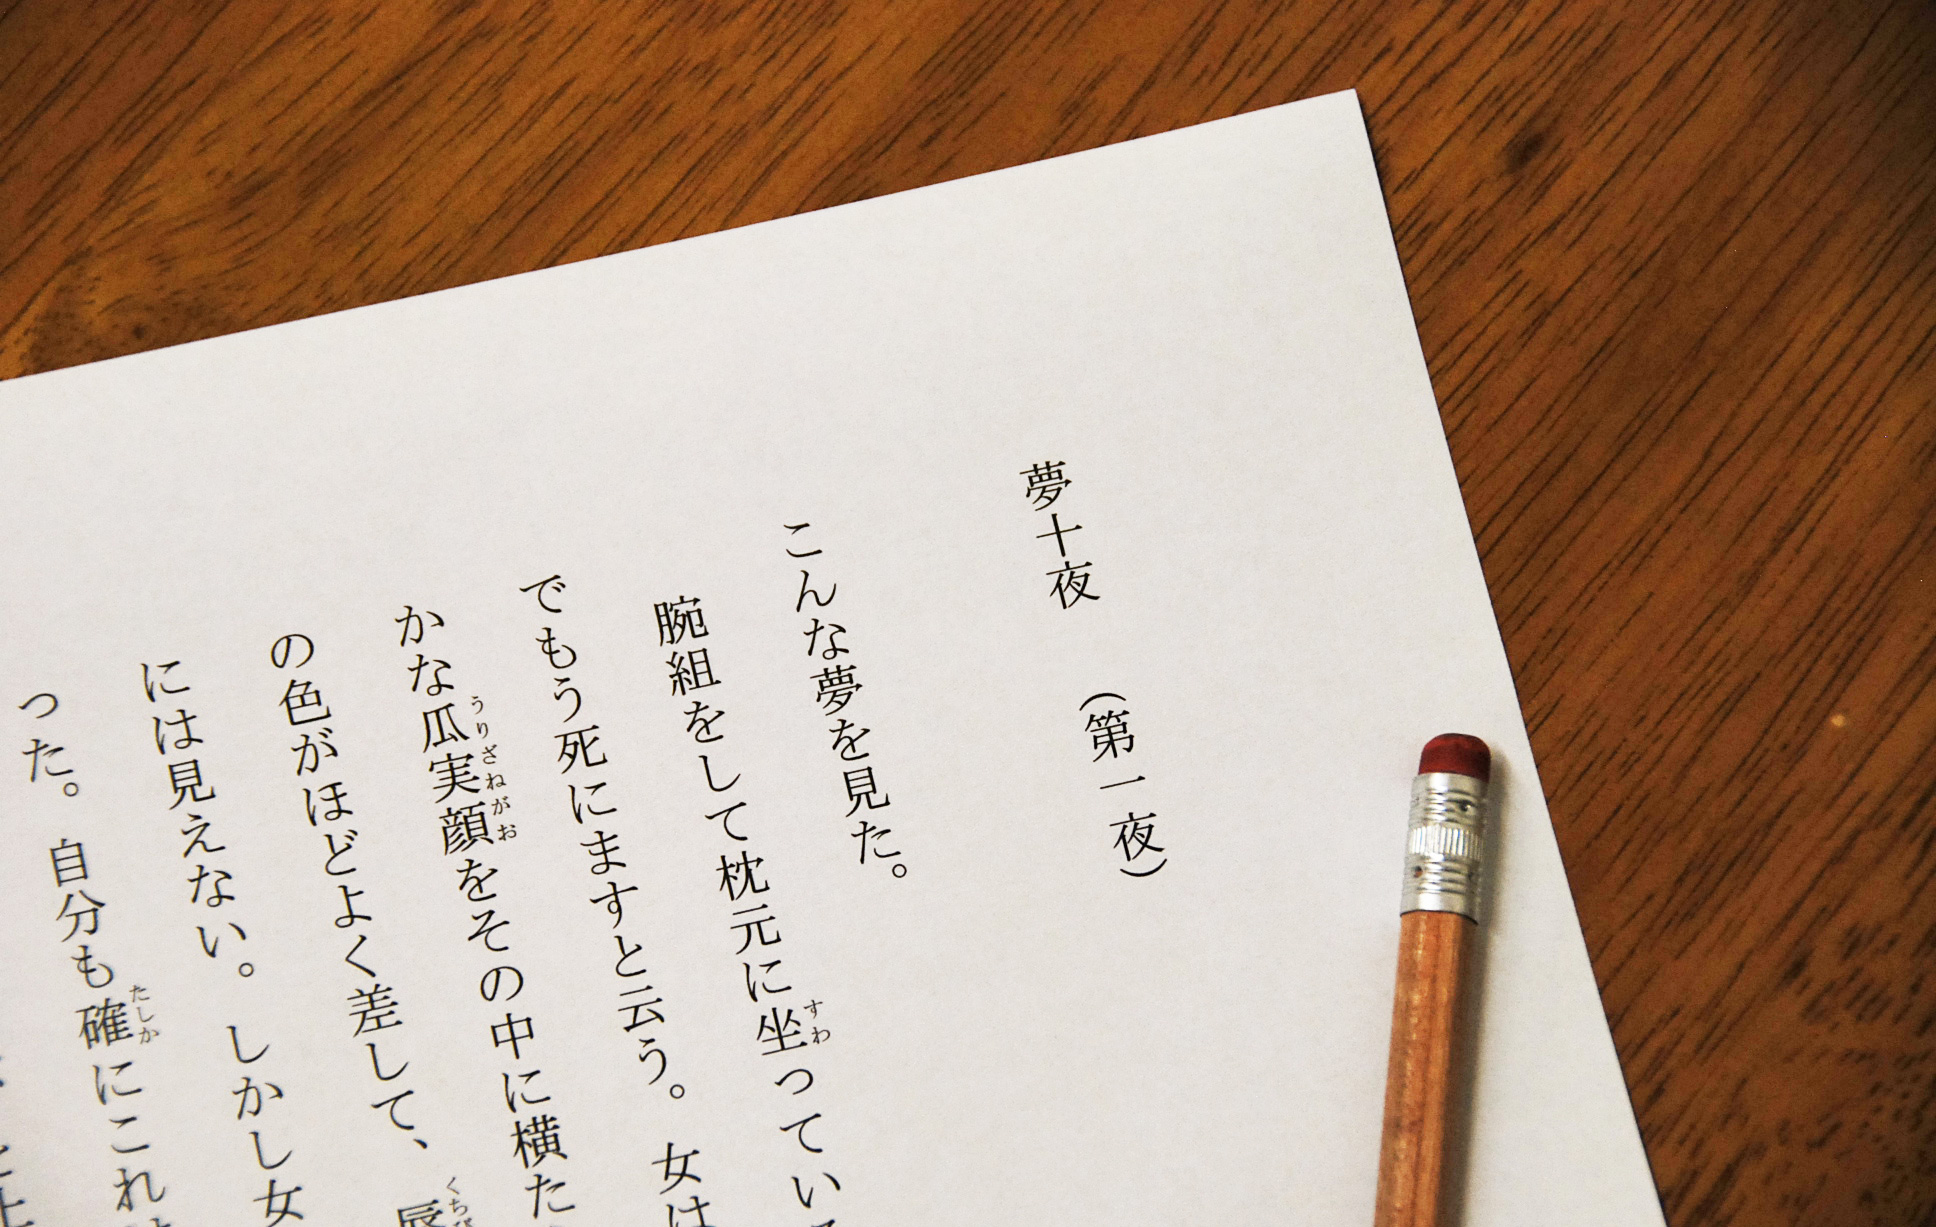 夢十夜　（第一夜）
こんな夢を見た。
腕組をして枕元に坐ってい
でもう死にますと云う。女は
かな瓜実顔をその中に横た
の色がほどよく差して、唇
には見えない。しかし女
った。自分も確にこれ